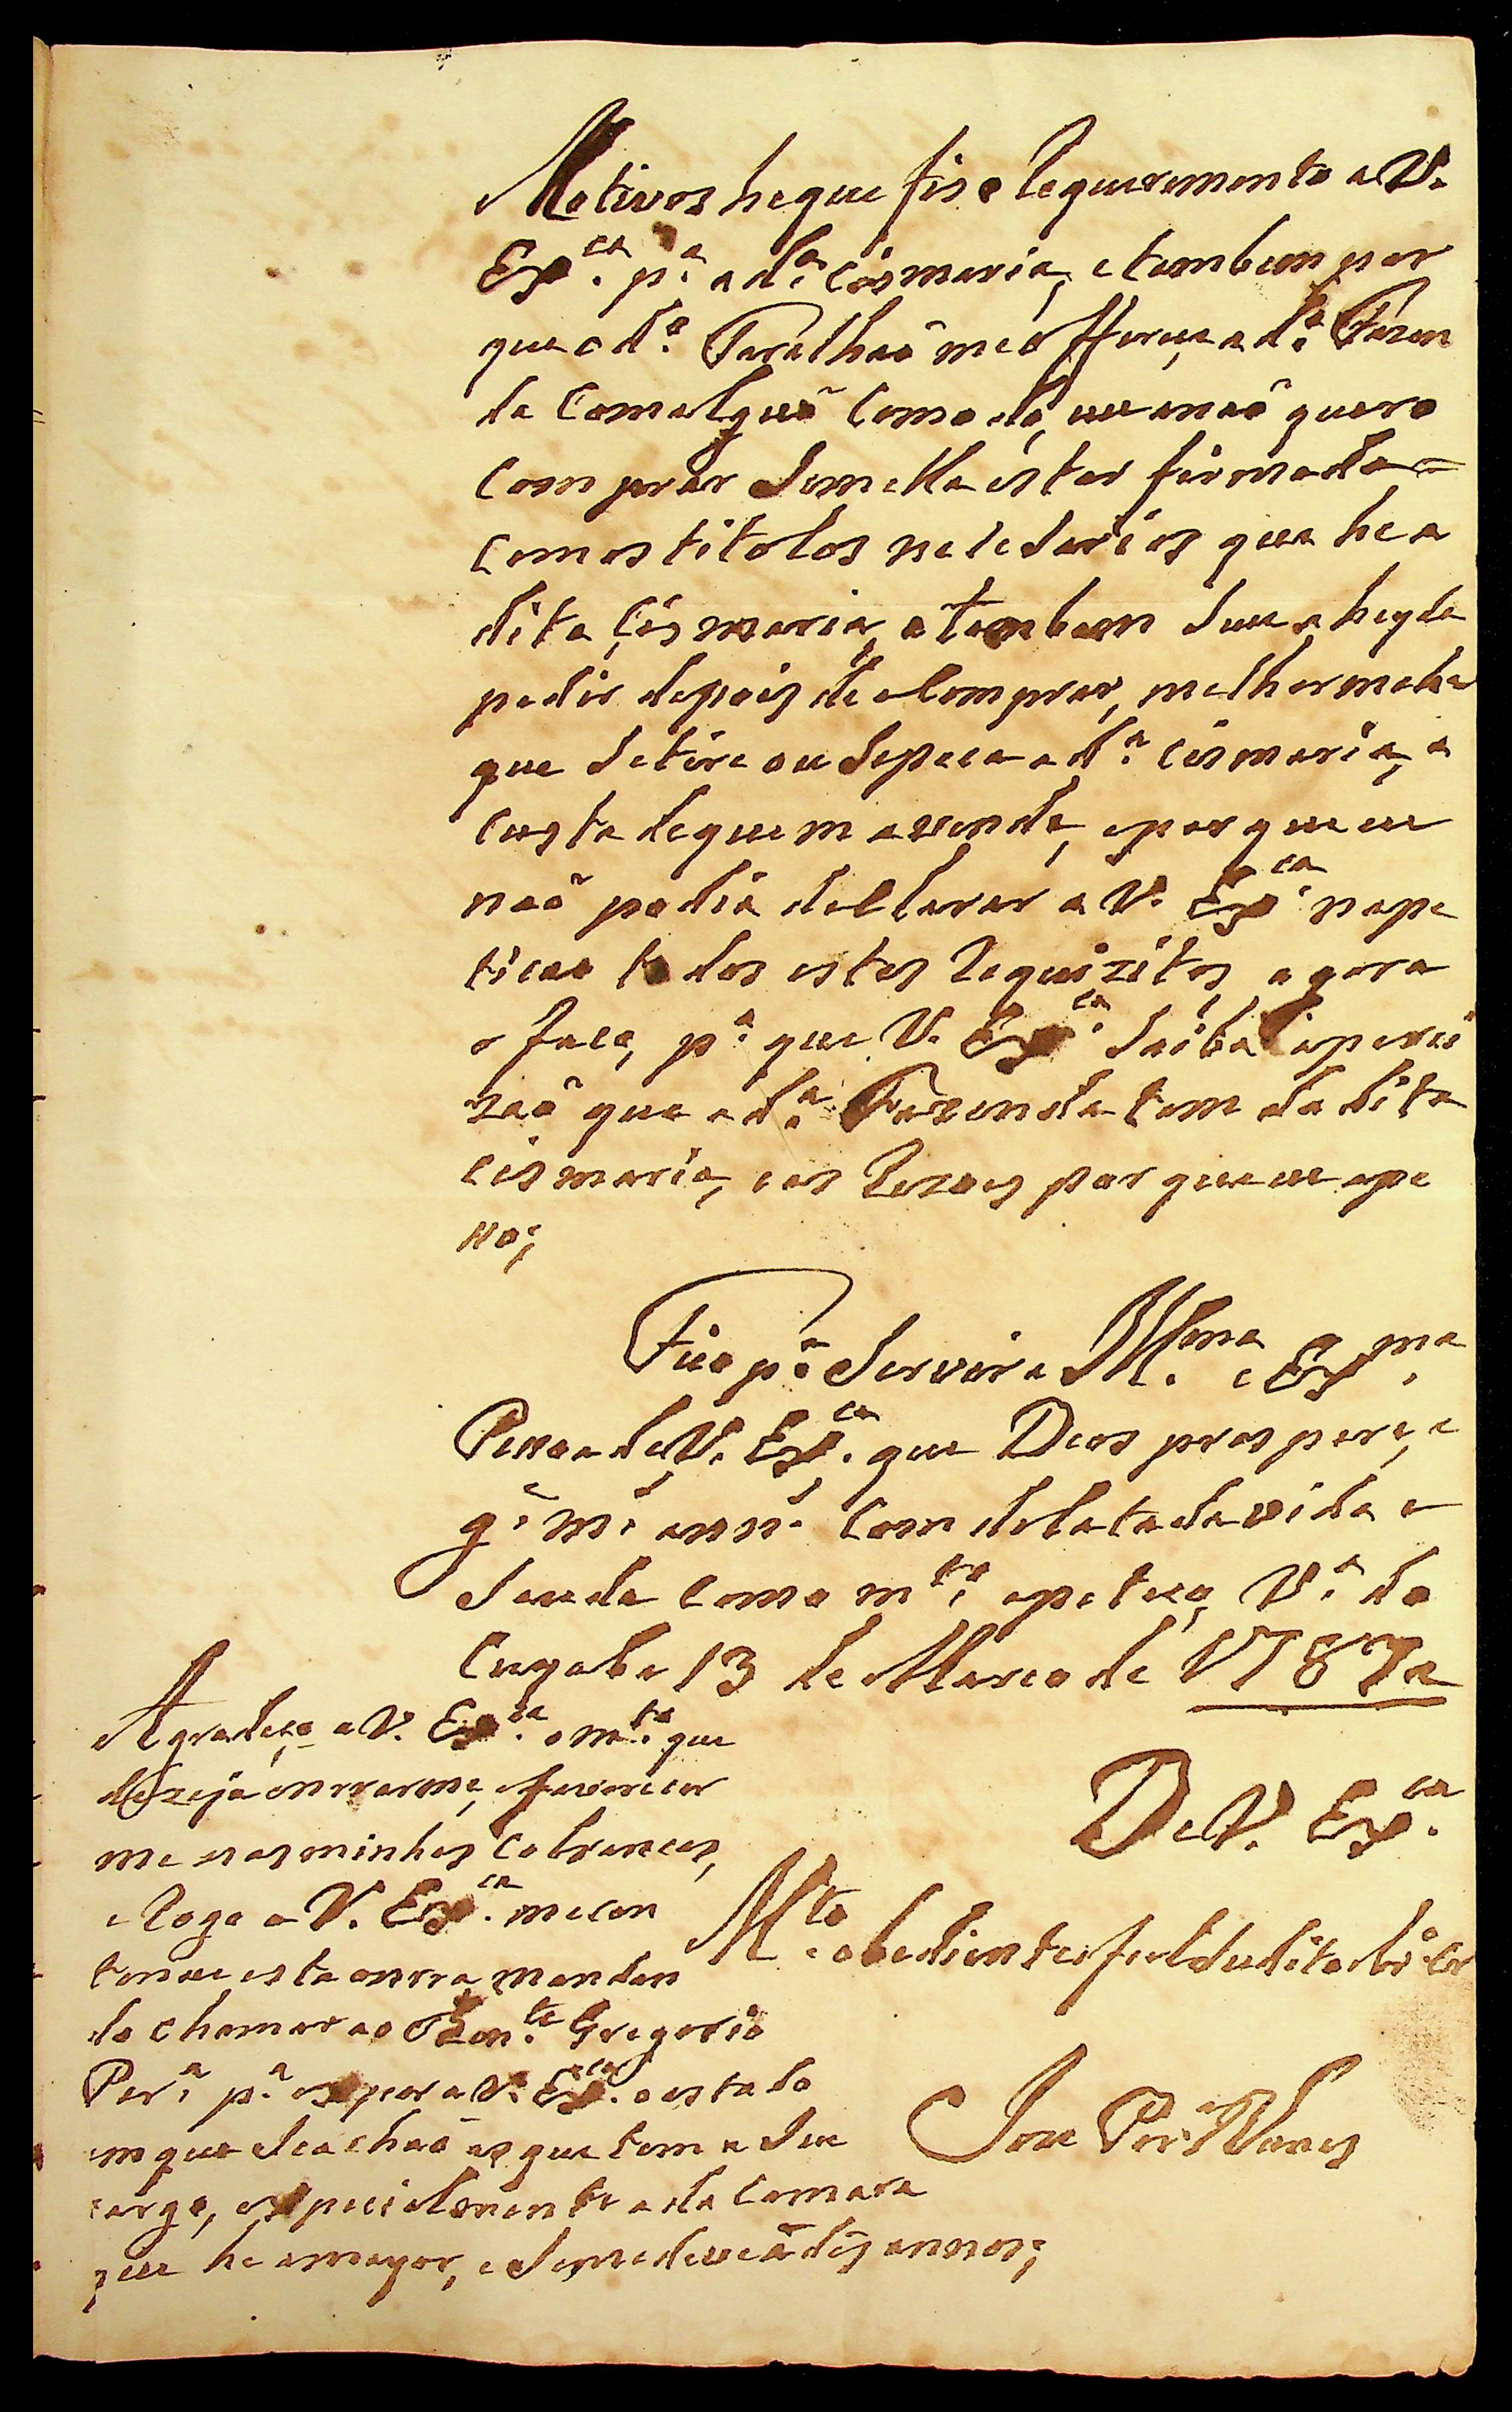 Motivos he que fis o Requerimento a V.
Ex.ca p.a a d.a Cismaria, etambem por
que o d.o Parelhaõ me offerece a d.a Fazen
da Com alguã Comodẽ, eu anaõ quero
Comprar Sem ella estar firmada =
Com os titolos necesarios que he a
dita Cismaria, etambem Se eu a hey de
pedir depois de a Comprar, milhor me he
que Se tire ou Se peca a d.a Cismaria, a
custa de quem a vende, e por que eu
naõ podia declarar a V. Ex.ca na pe
ticao todos estes Requizitos, agora
o faco, p.a que V. Ex.ca Saiba a perci
zaõ que a d.a Fazenda tem da dita
Cismaria, e as Rezoes por que eu a pe
co;
Fico p.a Servir a Ill.ma e Ex.ma
Pessoa de V. Ex.ca que Deos prospere, e
g.e m.s ann.s Com delatada vida e
Saude Como m.to apeteco V.a do
Cuyaba 13 de Marco de 1787 a
De V. Ex.ca
M.to obediente e fiel Sudito
Joze Per.a Nunes
Agradeco a V. Ex.ca o m.to que
dezeja onrrarme, e favorecer
me nas minhas Cobrancas,
e Rogo a V. Ex.ca me con
tenue esta onrra, mandan
do chamar ao Ten.te Gregorio
Per.a p.a expor a V. Ex.ca o estado
em que Se achaõ as que tem a Seu
cargo, especialmente a da Camara
que he a mayor, e Se me deve á dés annos;